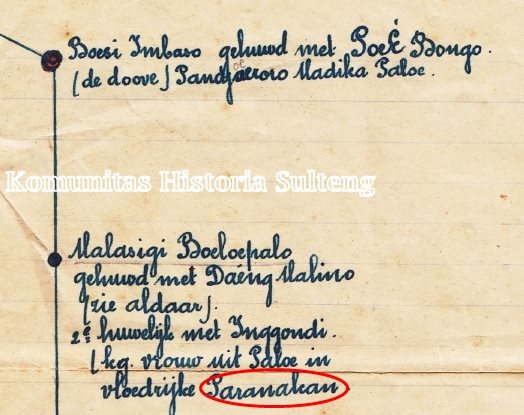 Boesi Imbaso gehuwd met Poeë Bongo.
(de doove) Pandjoeroro Madika Paloe.
Komunitas Historia Sulteng
Malasigi Boeloepalo
gehuwd met Daëng Malino
(zie aldaar).
2e huwelijk met Inggondi.
(kg. vrouw uit Paloe in
vloedrijke Paranakan